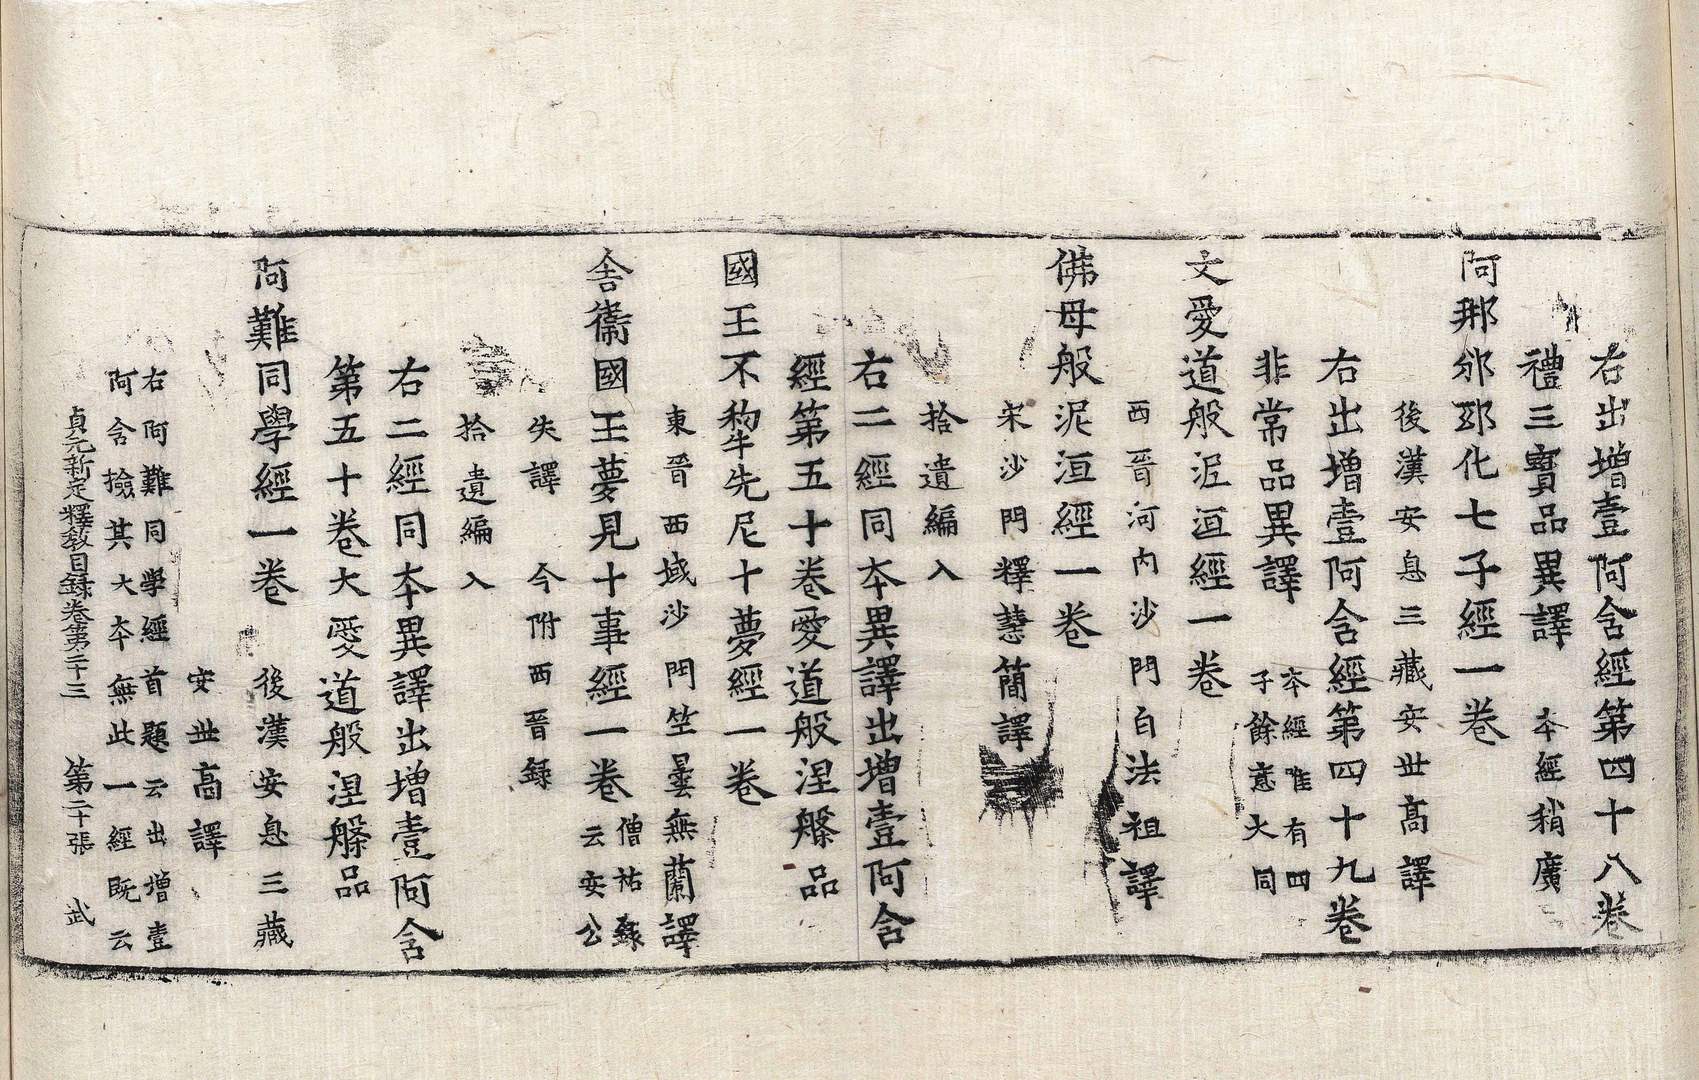 右出增壹阿含經第四十八卷
禮三寶品異譯 本經稍廣
阿那邠邸化七子經一卷
後漢安息三藏安世高譯
右出增壹阿含經第四十九卷
非常品異譯 本經唯有四
子餘意大同
大愛道般泥洹經一卷
西晉河內沙門白法祖譯
佛母般泥洹經一卷
宋沙門釋慧簡譯
拾遺編入
右二經同本異譯出增壹阿含
經第五十卷愛道般涅槃品
國王不犂先尼十夢經一卷
東晉西域沙門竺曇無蘭譯
舍衞國王夢見十事經一卷 僧祐錄
云安公
失譯 今附西晉錄
拾遺編入
右二經同本異譯出增壹阿含
第五十卷大愛道般涅槃品
阿難同學經一卷 後漢安息三藏
安世高譯
右阿難同學經首題云出增壹
阿含撿其大本無此一經既云
貞元新定釋教目録卷第二十三 第二十張 武